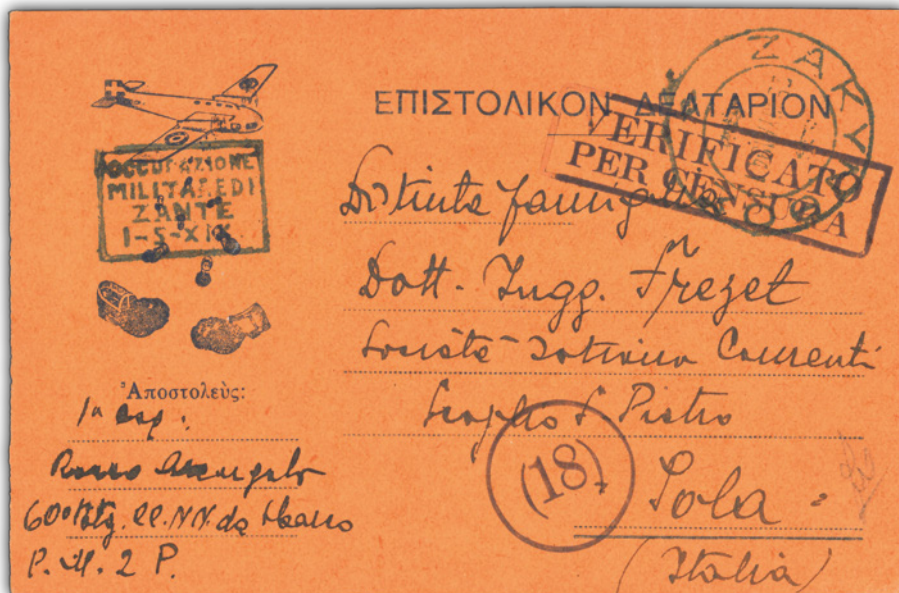 ΕΠΙΣΤΟΛΙΚΟΝ ΔΕΛΤΑΡΙΟΝ
ΖΑΚΥ
VERIFICATO
PER CENSURA
OCCUPAZIONE
MILITARE DI
ZANTE
1-5-XIX
Distinta famiglia
Dott. Ingg. Frezet
Società
Cementi
S. Pietro
(18)
Pola
(Italia)
Ἀποστολεὺς:
1ª
600 Btg. CC.NN. da
P. M. 2 P.